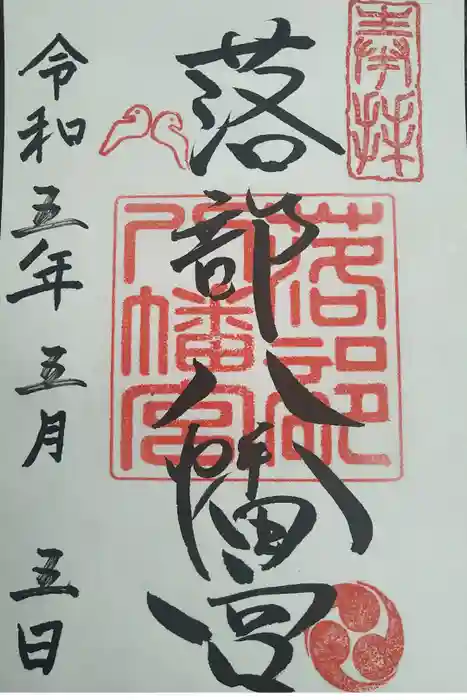 奉拝
落部八幡宮
落部八幡宮
令和五年五月五日